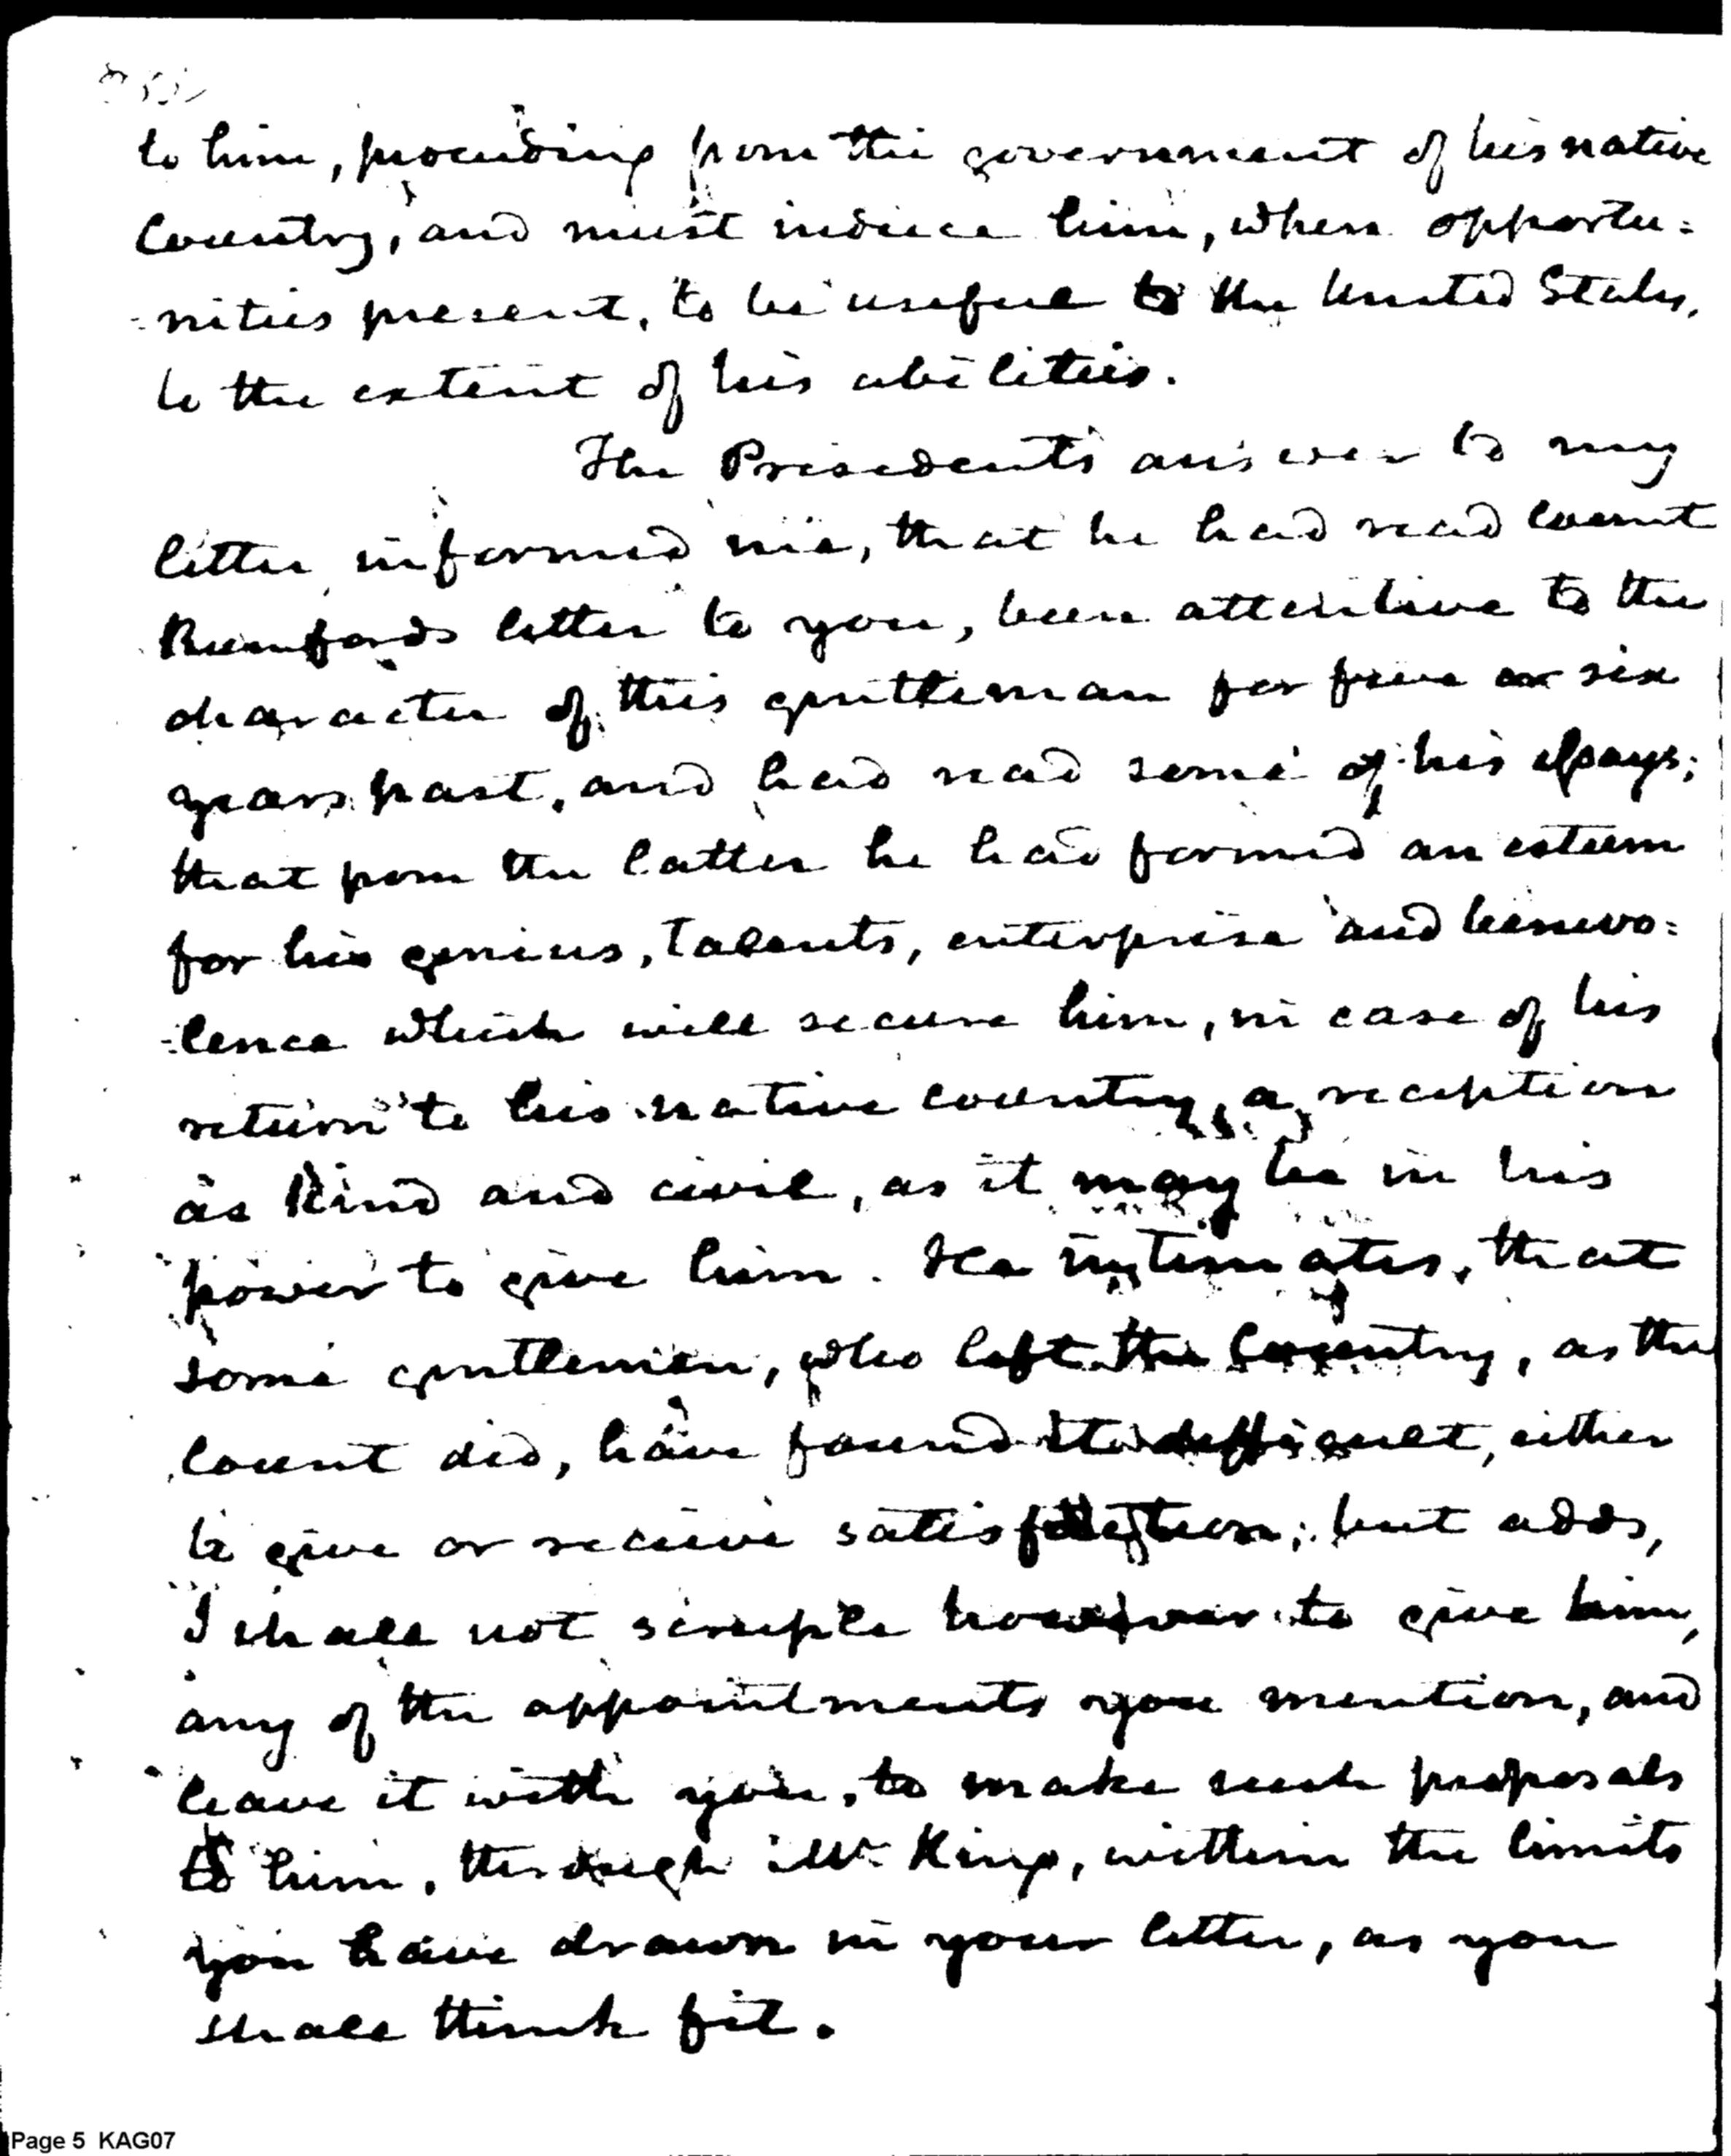 to him, proceeding from the government of his native
Country, and must induce him, when opportu=
=nities present, to be useful to the United States,
to the extent of his abilities.
The Presidents answer to my
letter informed me, that he had read Count
Rumfords letter to you, been attentive to the
character of this gentleman for five or six
years past, and had read some of his essays;
that from the latter he had formed an esteem
for his genius, talents, enterprise and benevo=
=lence which will secure him, in case of his
return to his native country, a reception
as kind and civil, as it may be in his
power to give him. He intimates, that
some gentlemen, who left the Country, as the
Count did, have found it difficult, either
to give or receive satisfaction; but adds,
I shall not scruple however to give him,
any of the appointments you mention, and
leave it with you, to make such proposals
to him, through Mr. King, within the limits
you have drawn in your letter, as you
shall think fit.
Page 5 KAG07